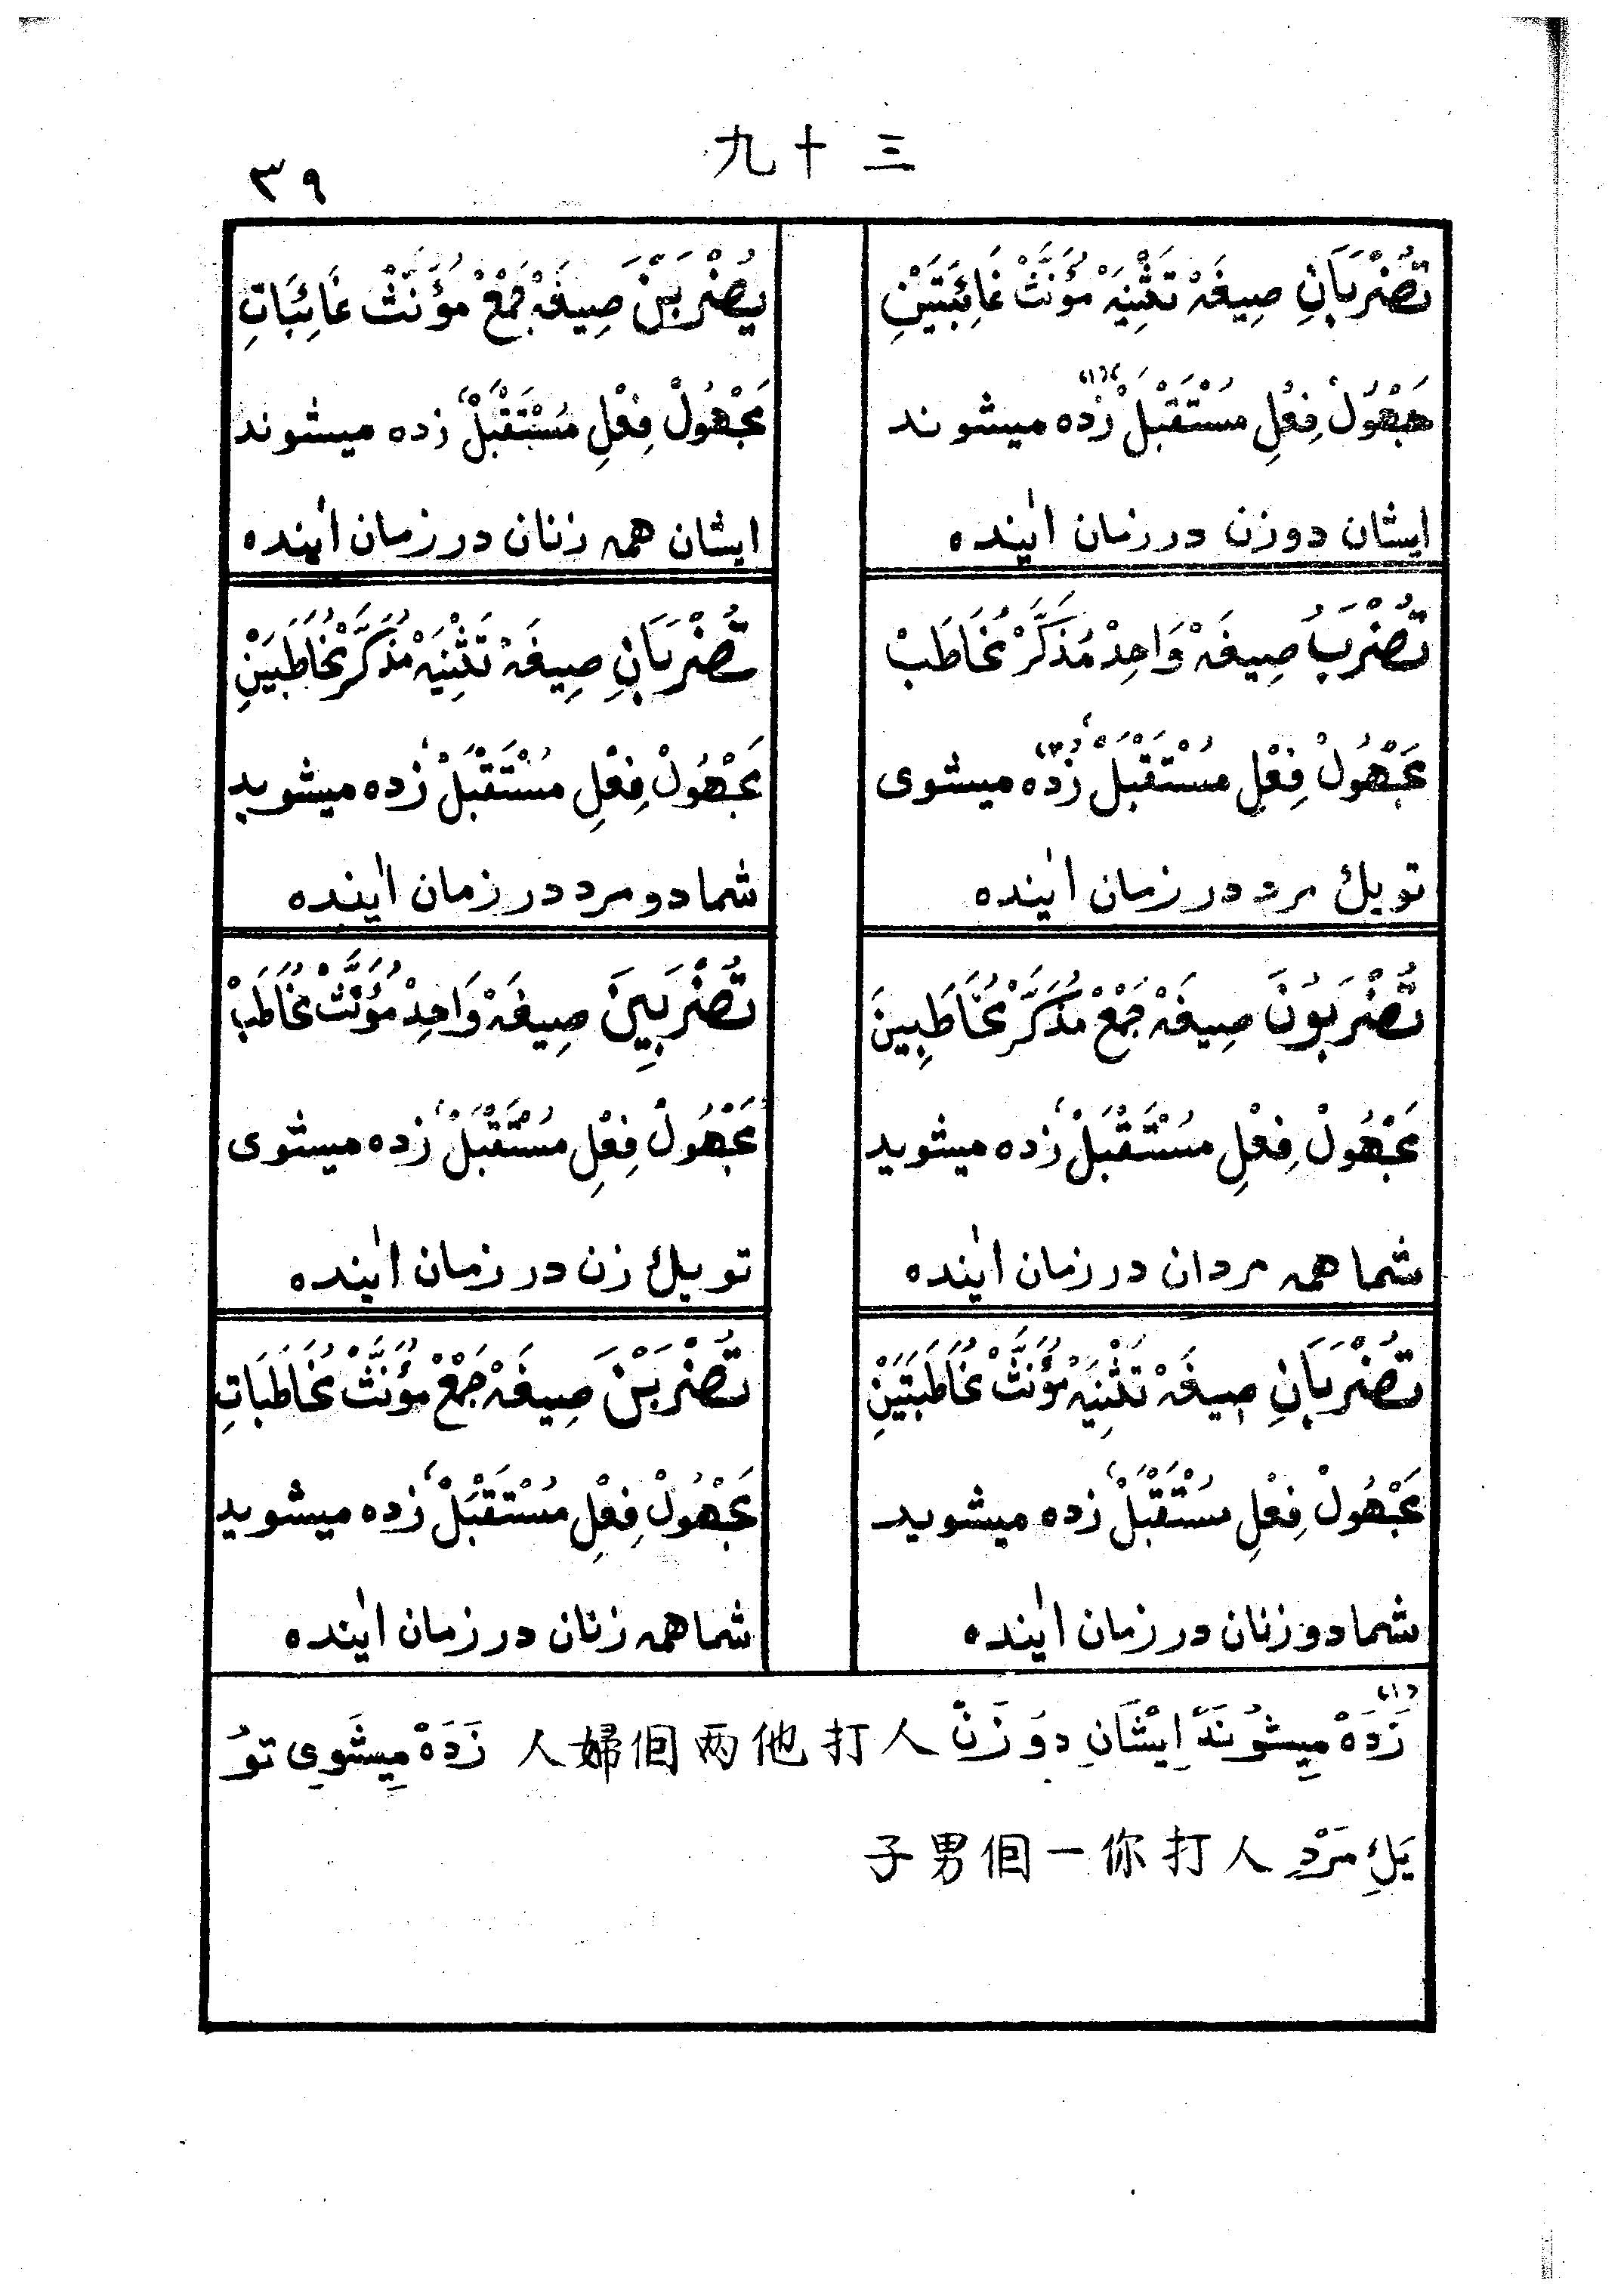 九十三
٣٩
تُضْرَبَانِ صِيغَهْ تَثْنِيَهْ مُؤَنَّثْ غَائِبَتَيْنِ
مَجْهُولْ فِعْلِ مُسْتَقْبَلْ زده میشوند
ایشان دو زن در زمان اینده
يُضْرَبْنَ صِيغَهْ جَمْعْ مُؤَنَّثْ غَائِبَاتِ
مَجْهُولْ فِعْلِ مُسْتَقْبَلْ زده میشوند
ایشان همه زنان در زمان اینده
تُضْرَبُ صِيغَهْ وَاحِدْ مُذَكَّرْ مُخَاطَبْ
مَجْهُولْ فِعْلِ مُسْتَقْبَلْ زده میشوی
تو یك مرد در زمان اینده
تُضْرَبَانِ صِيغَهْ تَثْنِيَهْ مُذَكَّرْ مُخَاطَبَيْنِ
مَجْهُولْ فِعْلِ مُسْتَقْبَلْ زده میشوید
شما دو مرد در زمان اینده
تُضْرَبُونَ صِيغَهْ جَمْعْ مُذَكَّرْ مُخَاطَبِينَ
مَجْهُولْ فِعْلِ مُسْتَقْبَلْ زده میشوید
شما همه مردان در زمان اینده
تُضْرَبِينَ صِيغَهْ وَاحِدْ مُؤَنَّثْ مُخَاطَبْ
مَجْهُولْ فِعْلِ مُسْتَقْبَلْ زده میشوی
تو یك زن در زمان اینده
تُضْرَبَانِ صِيغَهْ تَثْنِيَهْ مُؤَنَّثْ مُخَاطَبَتَيْنِ
مَجْهُولْ فِعْلِ مُسْتَقْبَلْ زده میشوید
شما دو زنان در زمان اینده
تُضْرَبْنَ صِيغَهْ جَمْعْ مُؤَنَّثْ مُخَاطَبَاتِ
مَجْهُولْ فِعْلِ مُسْتَقْبَلْ زده میشوید
شما همه زنان در زمان اینده
(١) زَدَهْ مِیشَوَنْدْ اِیْشَانِ دُو زَنْ 人打他两個婦人 زَدَهْ مِیشَوِی تُو
یَكِ مَرْدِ 人打你一個男子